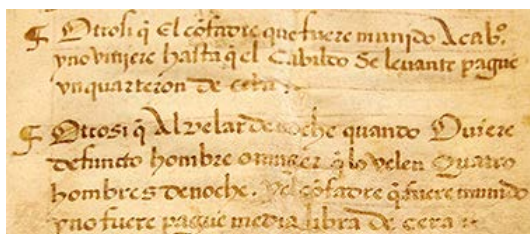 ¶ Otrosi q̃ El cõfadre que fuere munido A cabº.
y no viniere hasta q̃ el Cabildo Se levante pague
vn quarteron de cera
¶ Otrosi q̃ Al velar de noche quando Ouiere
defuncto hombre o muger q̃ lo velen Quatro
hombres de noche. Yel cõfadre q̃ fuere munido
y no fuere pague media libra de cera